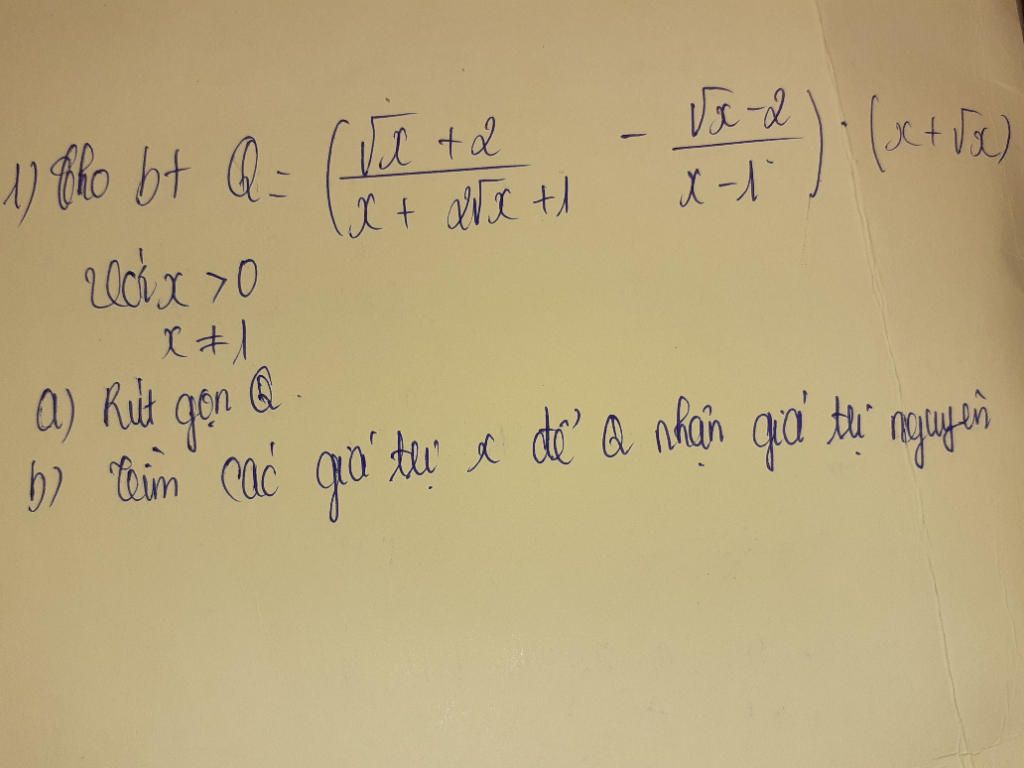 1) Cho bt Q = (√x + 2 / x + 2√x + 1 - √x - 2 / x - 1) · (x + √x)
Với x > 0
x ≠ 1
a) Rút gọn Q.
b) Tìm các giá trị x để Q nhận giá trị nguyên